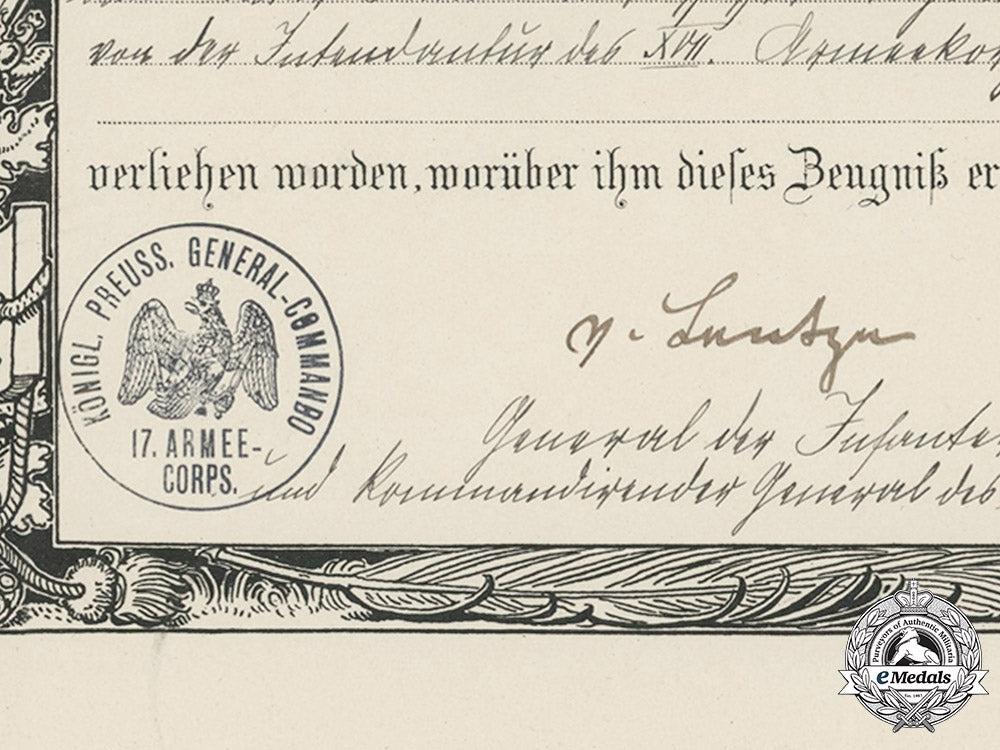 von der Intendantur des XVII. Armeekor
verliehen worden, worüber ihm dieses Zeugniß er
KÖNIGL. PREUSS. GENERAL-COMMANDO
17. ARMEE-
CORPS.
v. Lentze
General der Infante
und kommandirender General des
Purveyors of Authentic Militaria
eMedals